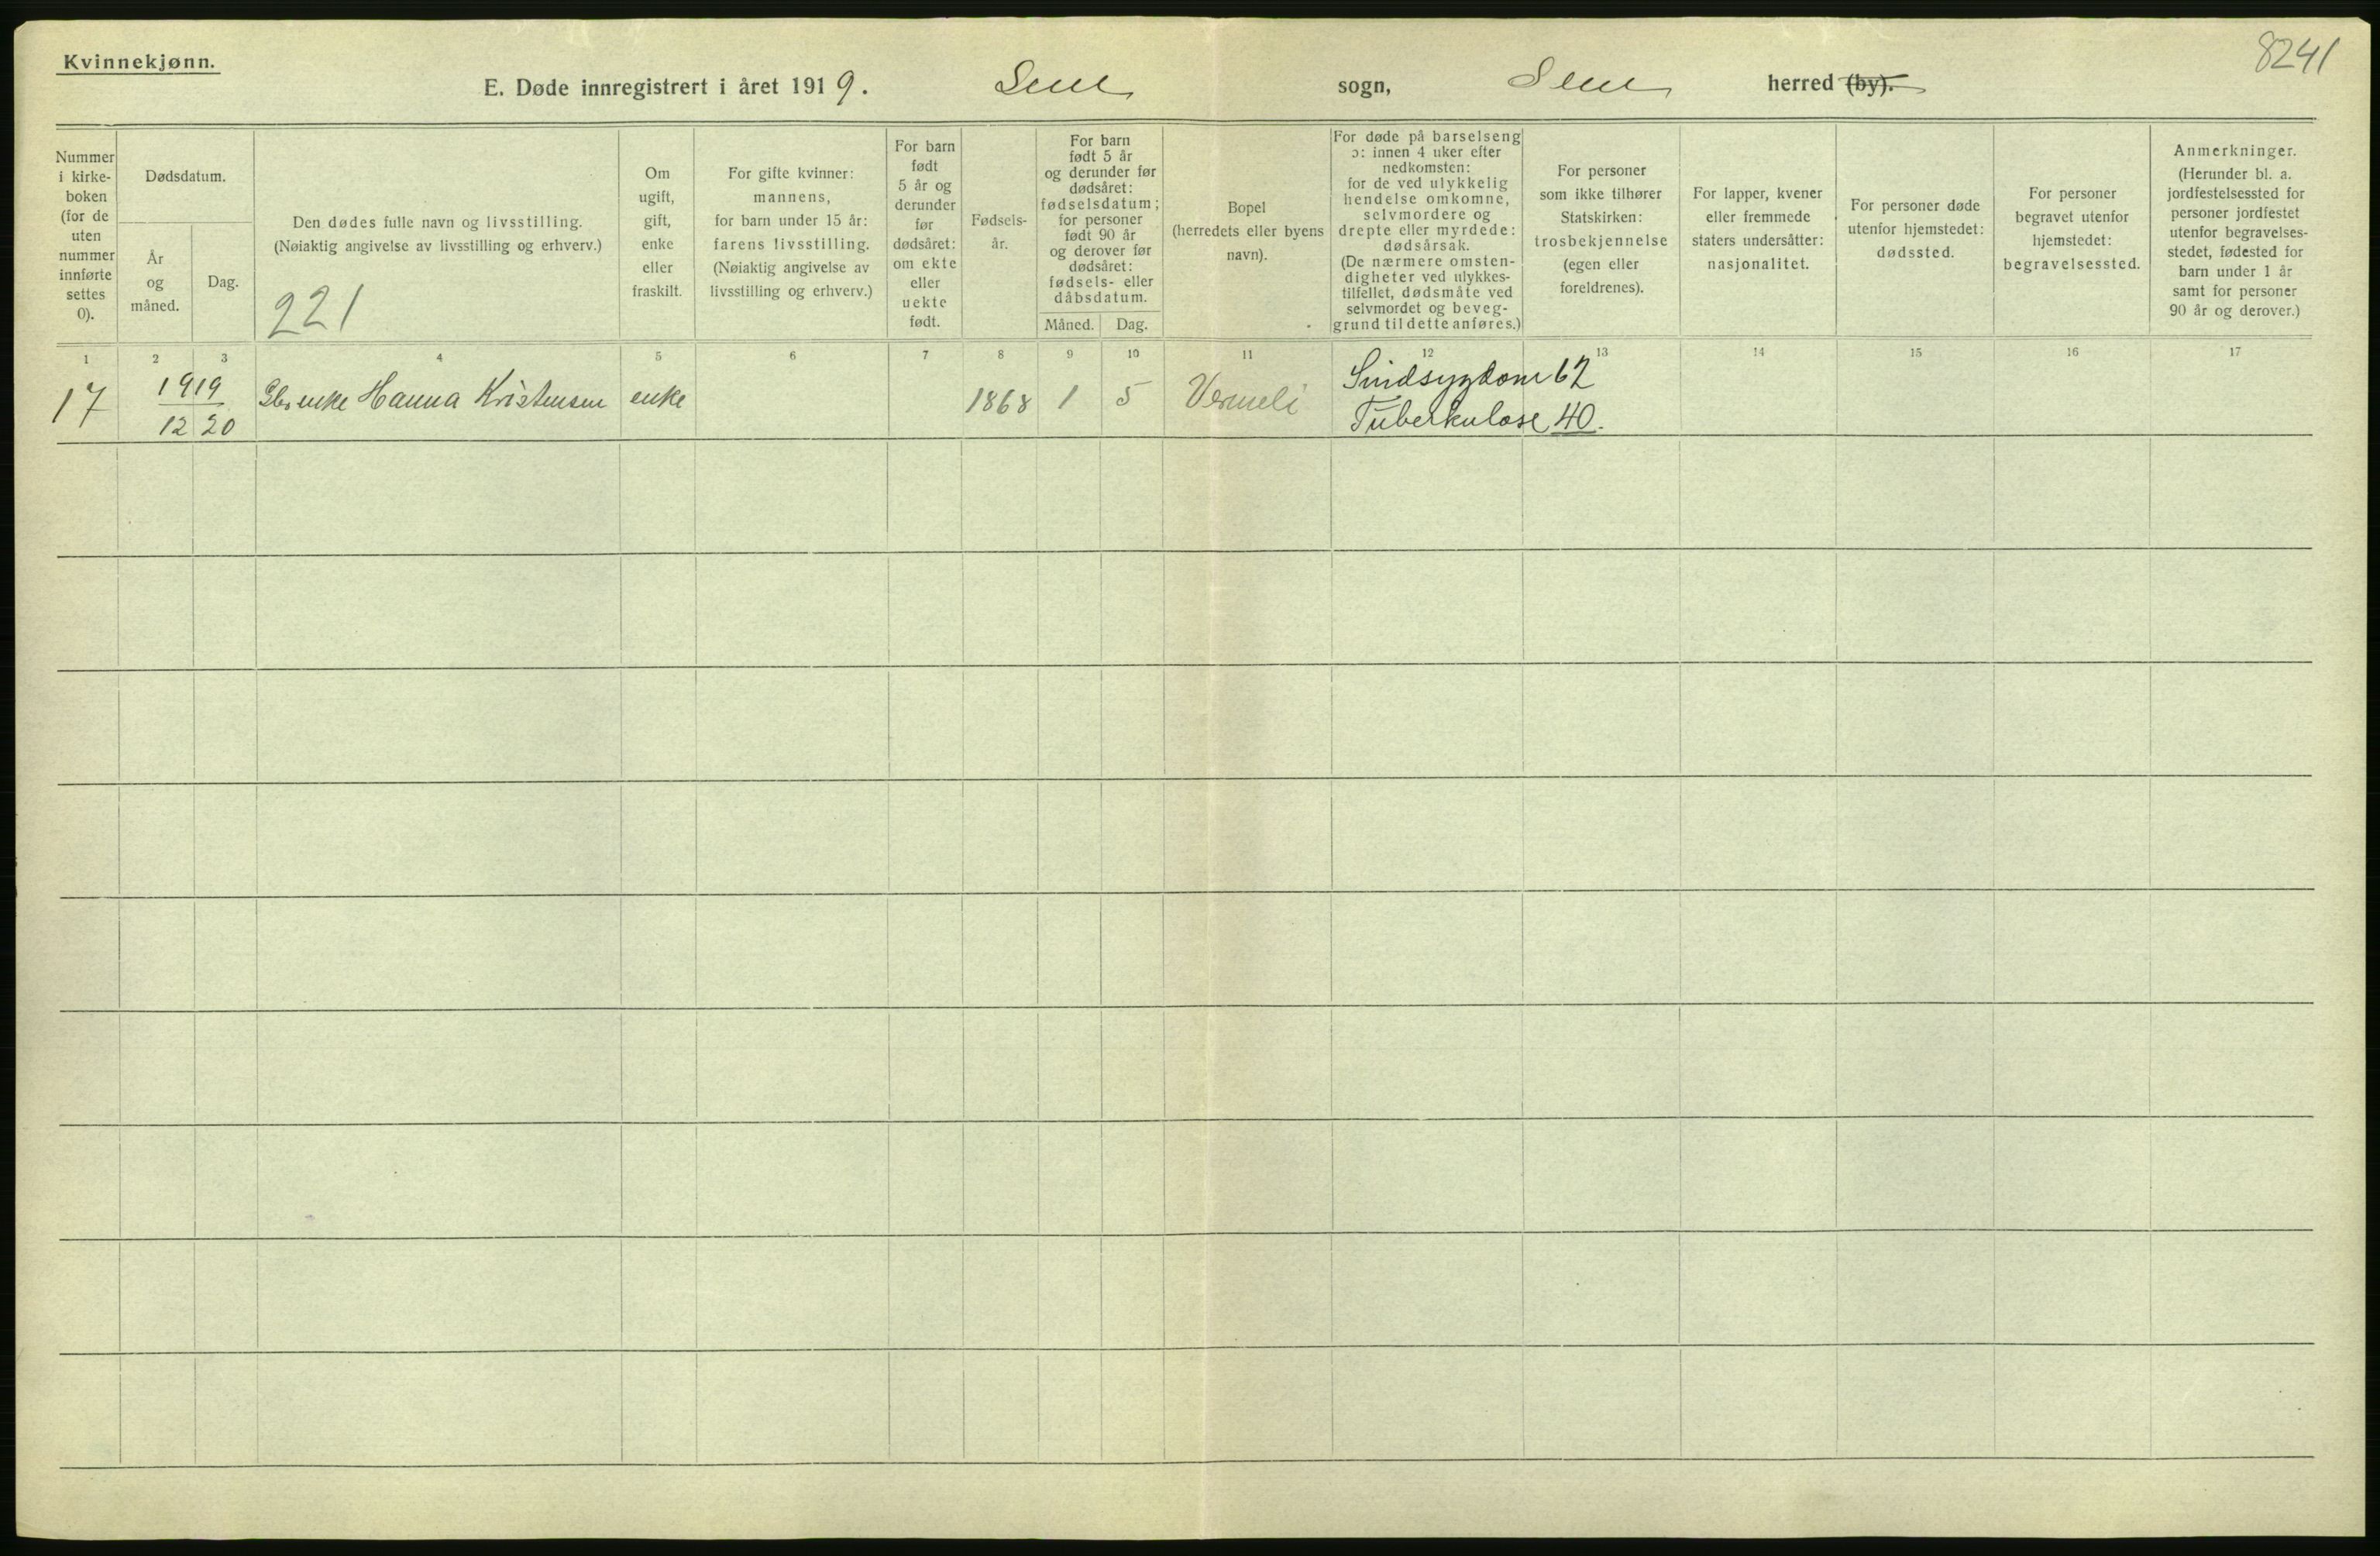 Kvinnekjønn.
8241
E. Døde innregistrert i året 1919. Sem sogn, Sem herred (by).
Nummer i kirke-boken (for de uten nummer innførte settes 0).
Dødsdatum.
År og måned.
Dag.
Den dødes fulle navn og livsstilling.
(Nøiaktig angivelse av livsstilling og erhverv.)
221
Om ugift, gift, enke eller fraskilt.
For gifte kvinner: mannens, for barn under 15 år: farens livsstilling. (Nøiaktig angivelse av livsstilling og erhverv.)
For barn født 5 år og derunder før dødsåret: om ekte eller uekte født.
Fødsels-år.
For barn født 5 år og derunder før dødsåret: fødselsdatum; for personer født 90 år og derover før dødsåret: fødsels- eller dåbsdatum.
Måned. Dag.
Bopel (herredets eller byens navn).
For døde på barselseng ɔ: innen 4 uker efter nedkomsten: for de ved ulykkelig hendelse omkomne, selvmordere og drepte eller myrdede: dødsårsak. (De nærmere omsten-digheter ved ulykkes-tilfellet, dødsmåte ved selvmordet og beveg-grund til dette anføres.)
For personer som ikke tilhører Statskirken: trosbekjennelse (egen eller foreldrenes).
For lapper, kvener eller fremmede staters undersåtter: nasjonalitet.
For personer døde utenfor hjemstedet: dødssted.
For personer begravet utenfor hjemstedet: begravelsessted.
Anmerkninger. (Herunder bl. a. jordfestelsessted for personer jordfestet utenfor begravelses-stedet, fødested for barn under 1 år samt for personer 90 år og derover.)
1 2 3 4 5 6 7 8 9 10 11 12 13 14 15 16 17
17 1919 12 20 enke Hanna Kristensen enke 1868 1 5 Vermeli Sindsygdom 62
Tuberkulose 40.